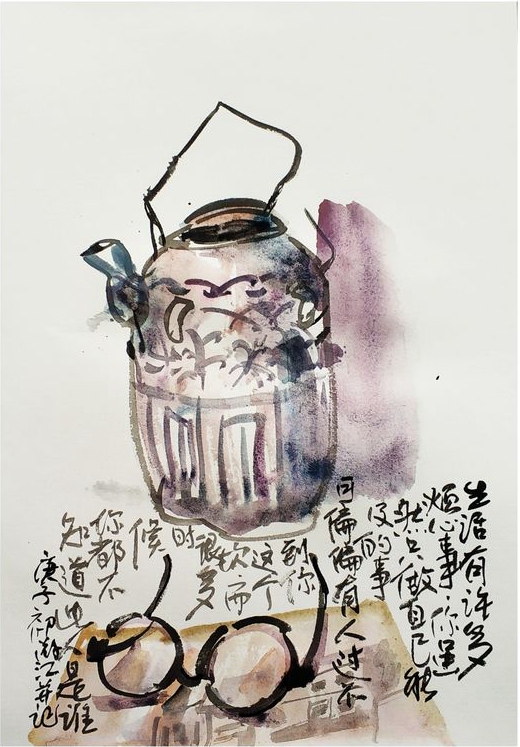 生活有许多
烦心事，你虽
然只做自己能
及的事
可偏偏有人过不
到你
这个
坎而
很多
时
候
你都不
知道此人是谁
庚子初 江并记